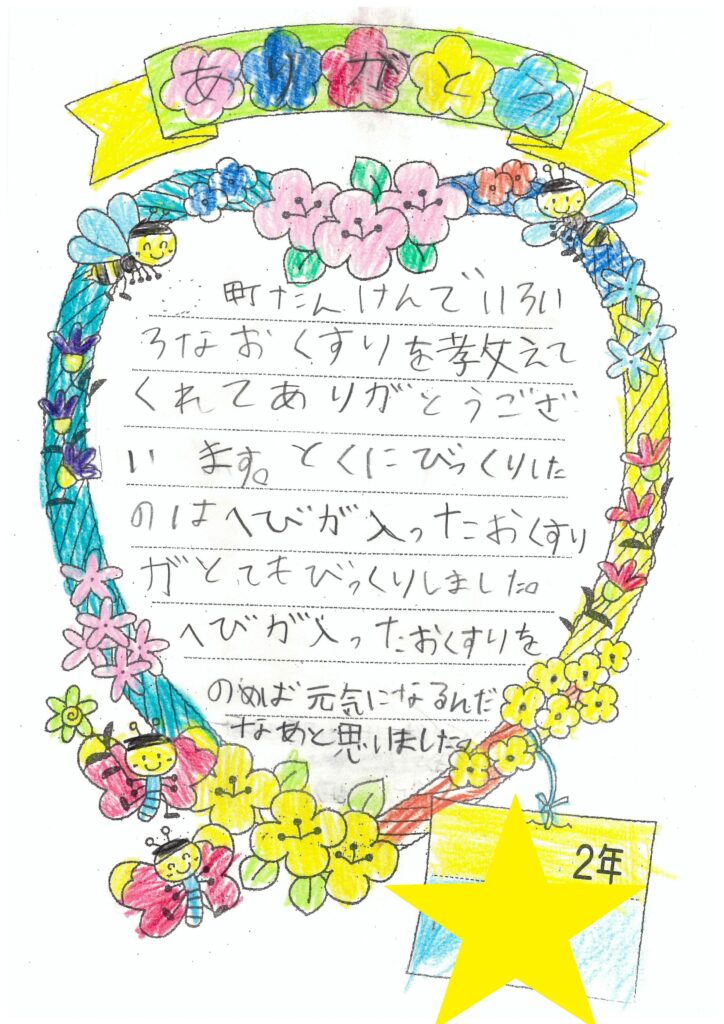 ありがとう
町たんけんでいろい
ろなおくすりを教えて
くれてありがとうござ
います。とくにびっくりした
のはへびが入ったおくすり
がとてもびっくりしました。
へびが入ったおくすりを
のめば元気になるんだ
なあと思いました。
2年